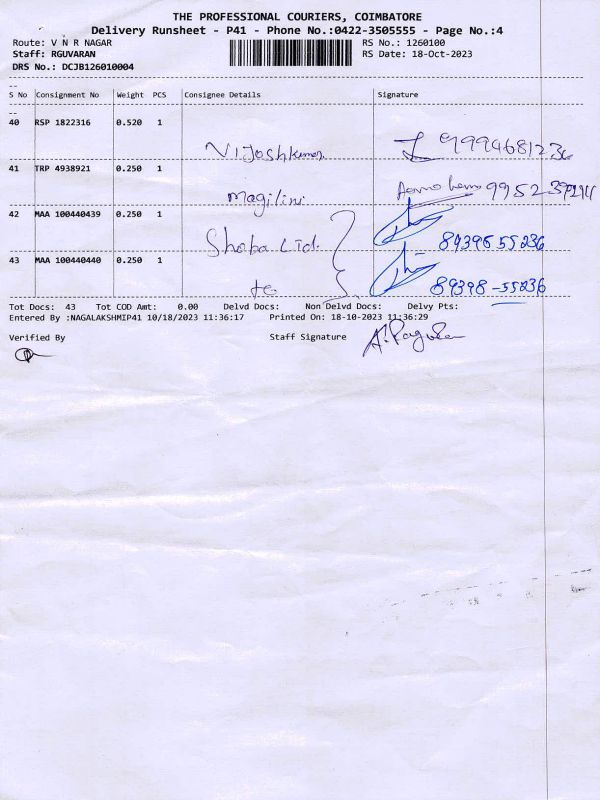 THE PROFESSIONAL COURIERS, COIMBATORE
Delivery Runsheet - P41 - Phone No.:0422-3505555 - Page No.:4
Route: V N R NAGAR RS No.: 1260100
Staff: RGUVARAN RS Date: 18-Oct-2023
DRS No.: DCJB126010004
S No Consignment No Weight PCS Consignee Details Signature
40 RSP 1822316 0.520 1
Vijoshkumar
41 TRP 4938921 0.250 1
Magilini
42 MAA 100440439 0.250 1
Shoba Ltd. 89396 55236
43 MAA 100440440 0.250 1
Tot Docs: 43 Tot COD Amt: 0.00 Delvd Docs: Non Delvd Docs: Delvy Pts:
Entered By :NAGALAKSHMIP41 10/18/2023 11:36:17 Printed On: 18-10-2023 11:36:29
Verified By Staff Signature